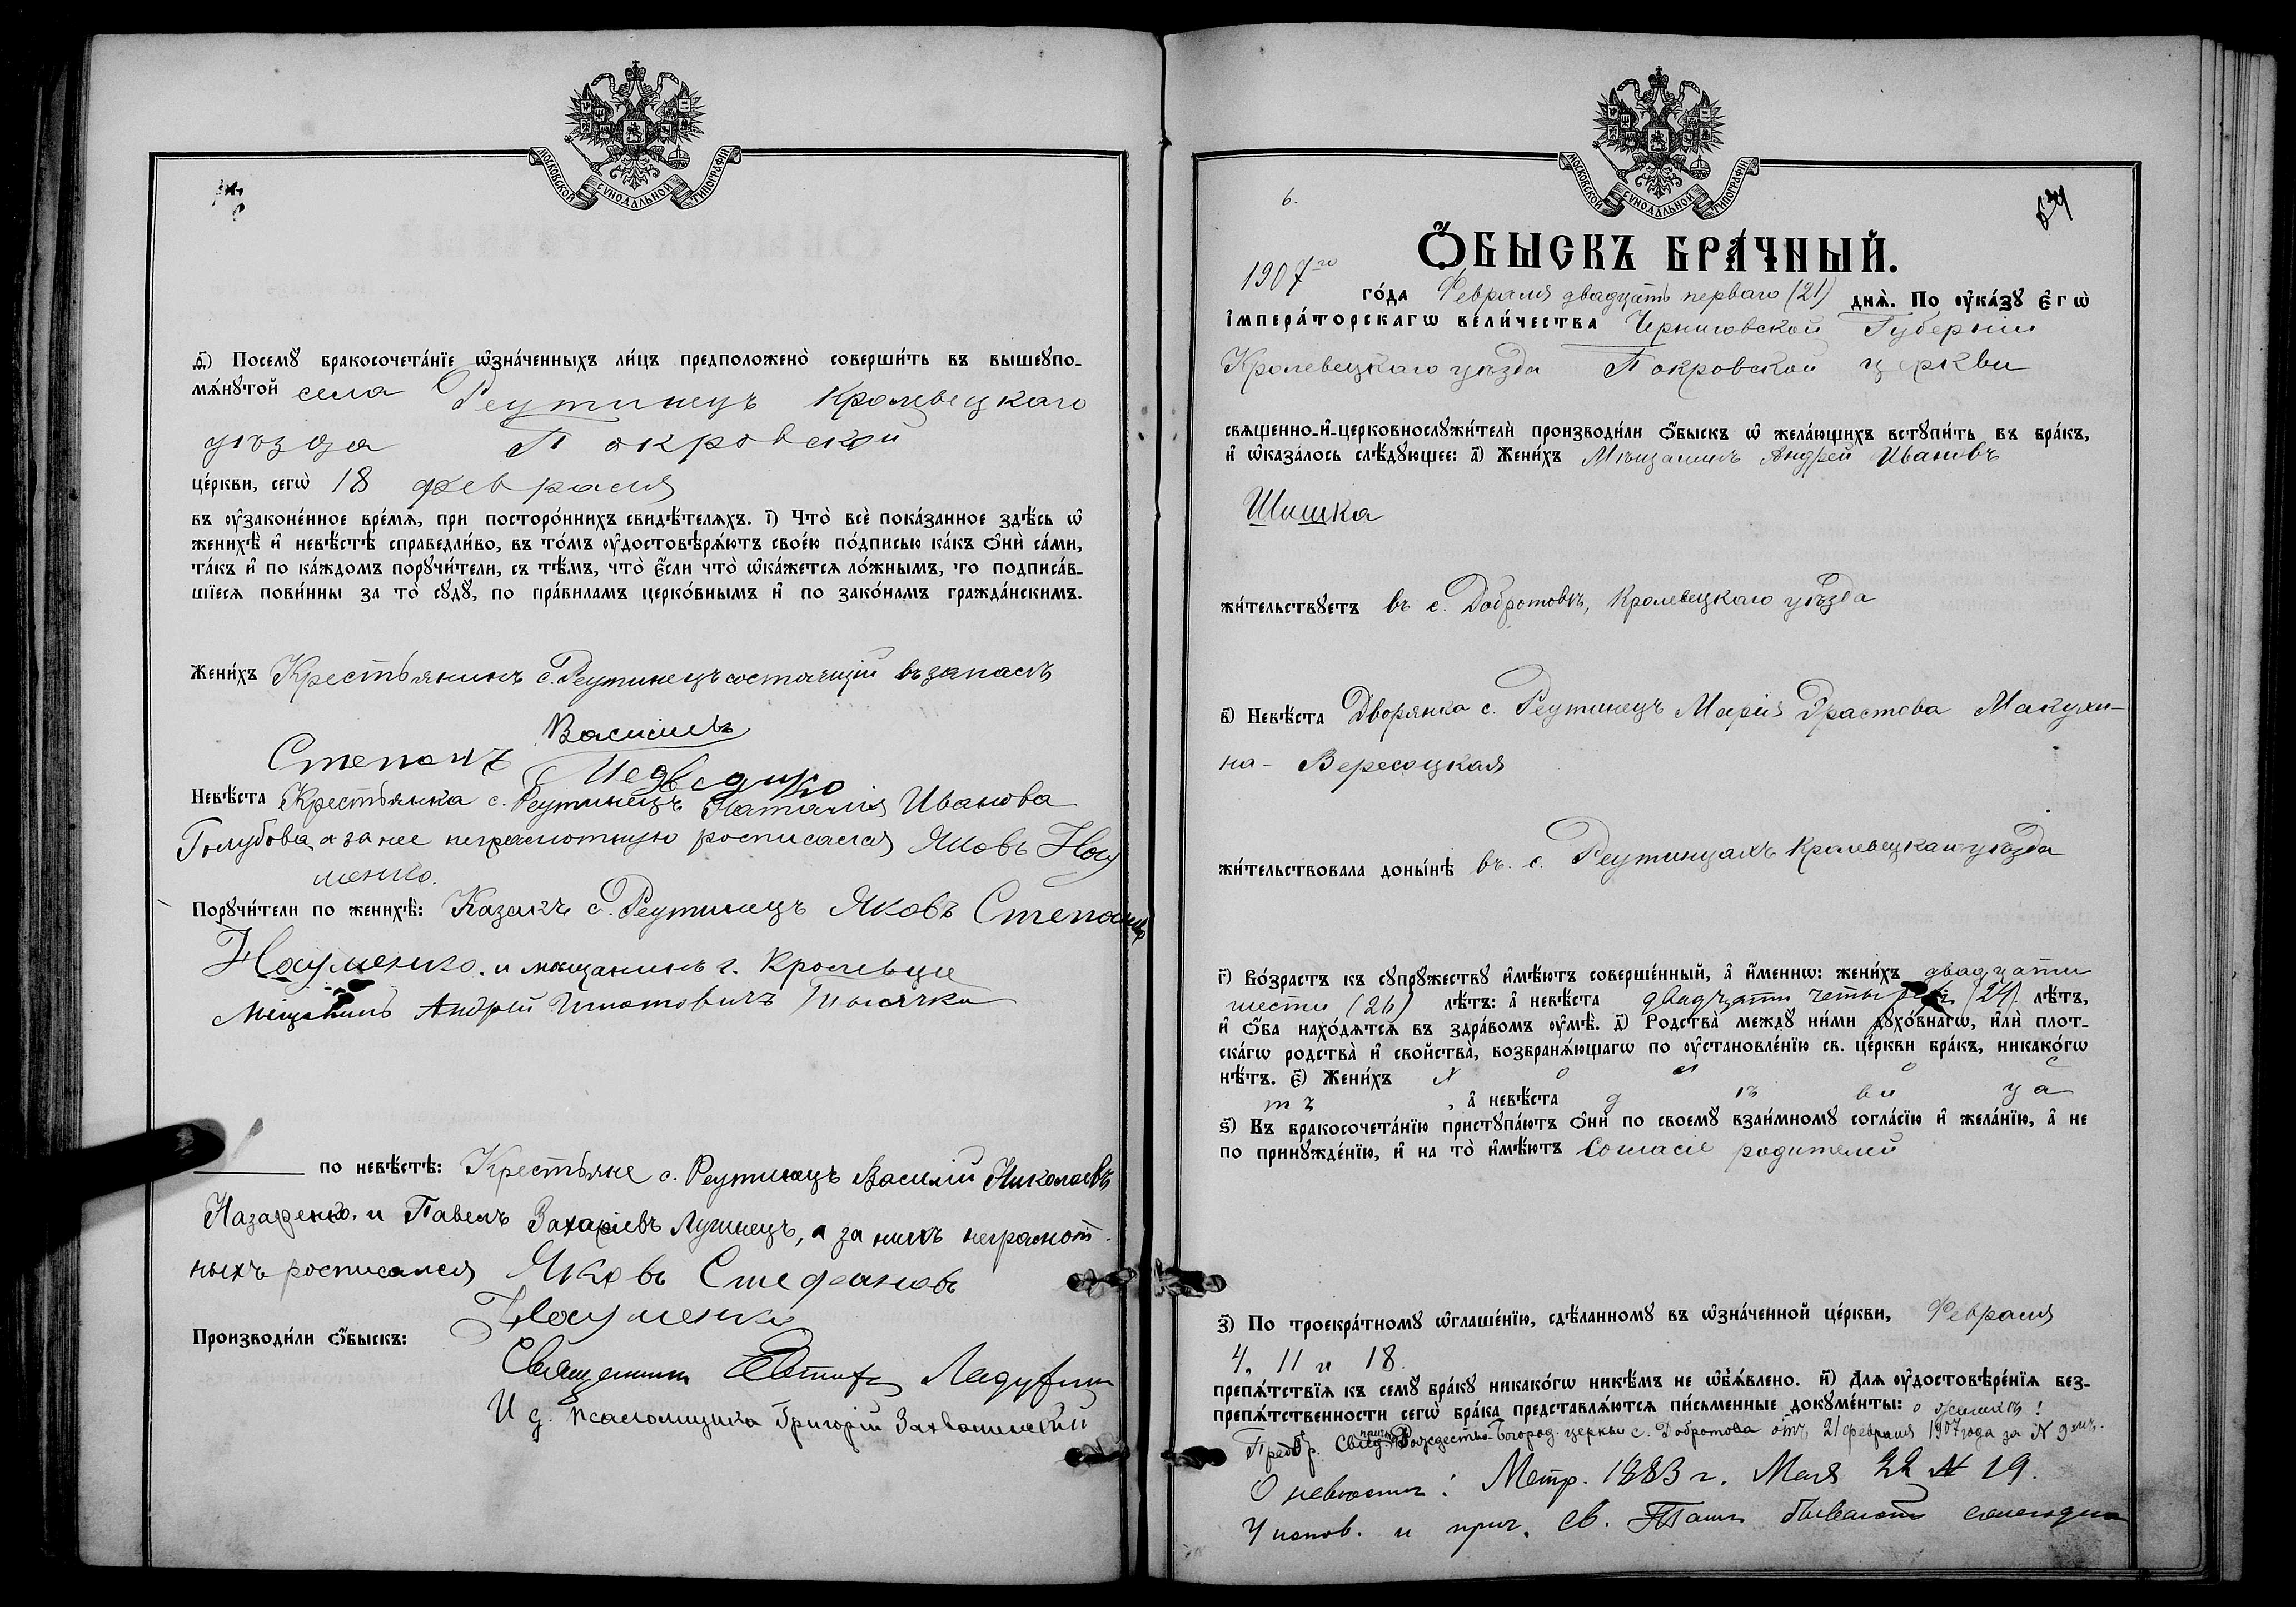 МОСКОВСКОЙ СѴНОДАЛЬНОЙ ТИПОГРАФІИ
д҃) Посемꙋ̀ бракосочета́нїе ѡ҆зна́ченныхъ ли́цъ предположено̀ соверши́ть въ вышеꙋпо-
мѧ́нꙋтой села Реутинецъ Кролевецкаго
уѣзда Покровской
це́ркви, сегѡ̀ 18 февраля
въ ᲂу҆законе́нное вре́мѧ, при посторо́ннихъ свидѣ́телѧхъ. і҃) Что̀ всѐ пока́занное здѣ́сь ѡ҆
женихѣ̀ и҆ невѣ́стѣ справедли́во, въ то́мъ ᲂу҆достовѣрѧ́ютъ свое́ю по́дписью ка́къ ѻ҆нѝ са́ми,
та́къ и҆ по ка́ждомъ порꙋчи́тели, съ тѣ́мъ, что̀ є҆́сли что̀ ѡ҆ка́жетсѧ ло́жнымъ, то подписа́в-
шїесѧ пови́нны за то̀ сꙋдꙋ̀, по пра́виламъ церко́внымъ и҆ по зако́намъ гражда́нскимъ.
Жени́хъ Крестьянинъ с. Реутинецъ состоящій въ запасѣ
Степанъ Васильевъ
Медведико
Невѣ́ста Крестьянка с. Реутинецъ Наталія Иванова
Голубова, а за нее неграмотную росписался Яковъ Нау
менко.
Порꙋчи́тели по женихѣ̀: Казакъ с. Реутинецъ Яковъ Степановъ
Науменко. и мѣщанинъ г. Кролевца
Мещанинъ Андрей Игнатовичъ
по невѣ́стѣ: Крестьяне с. Реутинецъ Василій Николаевъ
Назаренко. и Павелъ Захаріевъ Лушнецъ, а за нихъ неграмот
ныхъ росписался Яковъ Стефановъ
Науменко
Производи́ли ѻ҆́быскъ:
Священникъ Евтихій
И д. псаломщика Григорій
МОСКОВСКОЙ СѴНОДАЛЬНОЙ ТИПОГРАФІИ
6.
Ѻ҆́БЫСКЪ БРА́ЧНЫЙ.
1907го го́да Февраля двадцать перваго (21) днѧ̀. По ᲂу҆ка́зꙋ є҆гѡ̀
і҆мпера́торскагѡ вели́чества Черниговской Губерніи
Кролевецкаго уѣзда Покровской церкви
свѧщенно-и҆-церковнослꙋжи́тели производи́ли ѻ҆́быскъ ѡ҆ жела́ющихъ встꙋпи́ть въ бра́къ,
и҆ ѡ҆каза́лось слѣ́дꙋющее: а҃) Жени́хъ Мѣщанинъ Андрей Ивановъ
Шишка
жи́тельствꙋетъ въ с. Добротовѣ, Кролевецкаго уѣзда
в҃) Невѣ́ста Дворянка с. Реутинецъ Марія Эрастова Макухи-
на - Вересоцкая
жи́тельствовала доны́нѣ въ. с. Реутинцахъ Кролевецкаго уѣзда
г҃) Во́зрастъ къ сꙋпрꙋ́жествꙋ и҆мѣ́ютъ соверше́нный, а҆ и҆́меннѡ: жени́хъ двадцати
шести (26) лѣ́тъ: а҆ невѣ́ста двадцати четырехъ (24) лѣ́тъ,
и҆ ѻ҆́ба нахо́дѧтсѧ въ здра́вомъ ᲂу҆мѣ̀. д҃) Родства̀ междꙋ̀ ни́ми дꙋхо́внагѡ, и҆лѝ плот-
ска́гѡ родства̀ и҆ сво́йства, возбранѧ́ющагѡ по ᲂу҆становле́нїю св. це́ркви бра́къ, никако́гѡ
нѣ́тъ. є҃) Жени́хъ х о л о с
тъ , а҆ невѣ́ста д ѣ ви ца
ѕ҃) Въ бракосочета́нїю пристꙋпа́ютъ ѻ҆нѝ по своемꙋ̀ взаи́мномꙋ согла́сїю и҆ жела́нїю, а҆ не
по принꙋжде́нїю, и҆ на то̀ и҆мѣ́ютъ Согласіе родителей
з҃) По троекра́тномꙋ ѡ҆глаше́нїю, сдѣ́ланномꙋ въ ѡ҆зна́ченной це́ркви, Февраля
4, 11 и 18.
препѧ́тствїѧ къ семꙋ̀ бра́кꙋ никако́гѡ никѣ́мъ не ѡ҆б̾ѧ́влено. и҃) Длѧ ᲂу҆достовѣре́нїѧ без-
препѧ́тственности сегѡ̀ бра́ка представлѧ́ютсѧ пи́сьменные докꙋме́нты: о женихѣ!
Предбр. Свид. причта Рождество-Богород. церкви с. Добротова отъ 21 февраля 1907 года за №
О невѣстѣ: Метр. 1883 г. Мая 22 № 19.
У испов. и прич. Св. Таинъ бываютъ ежегодно